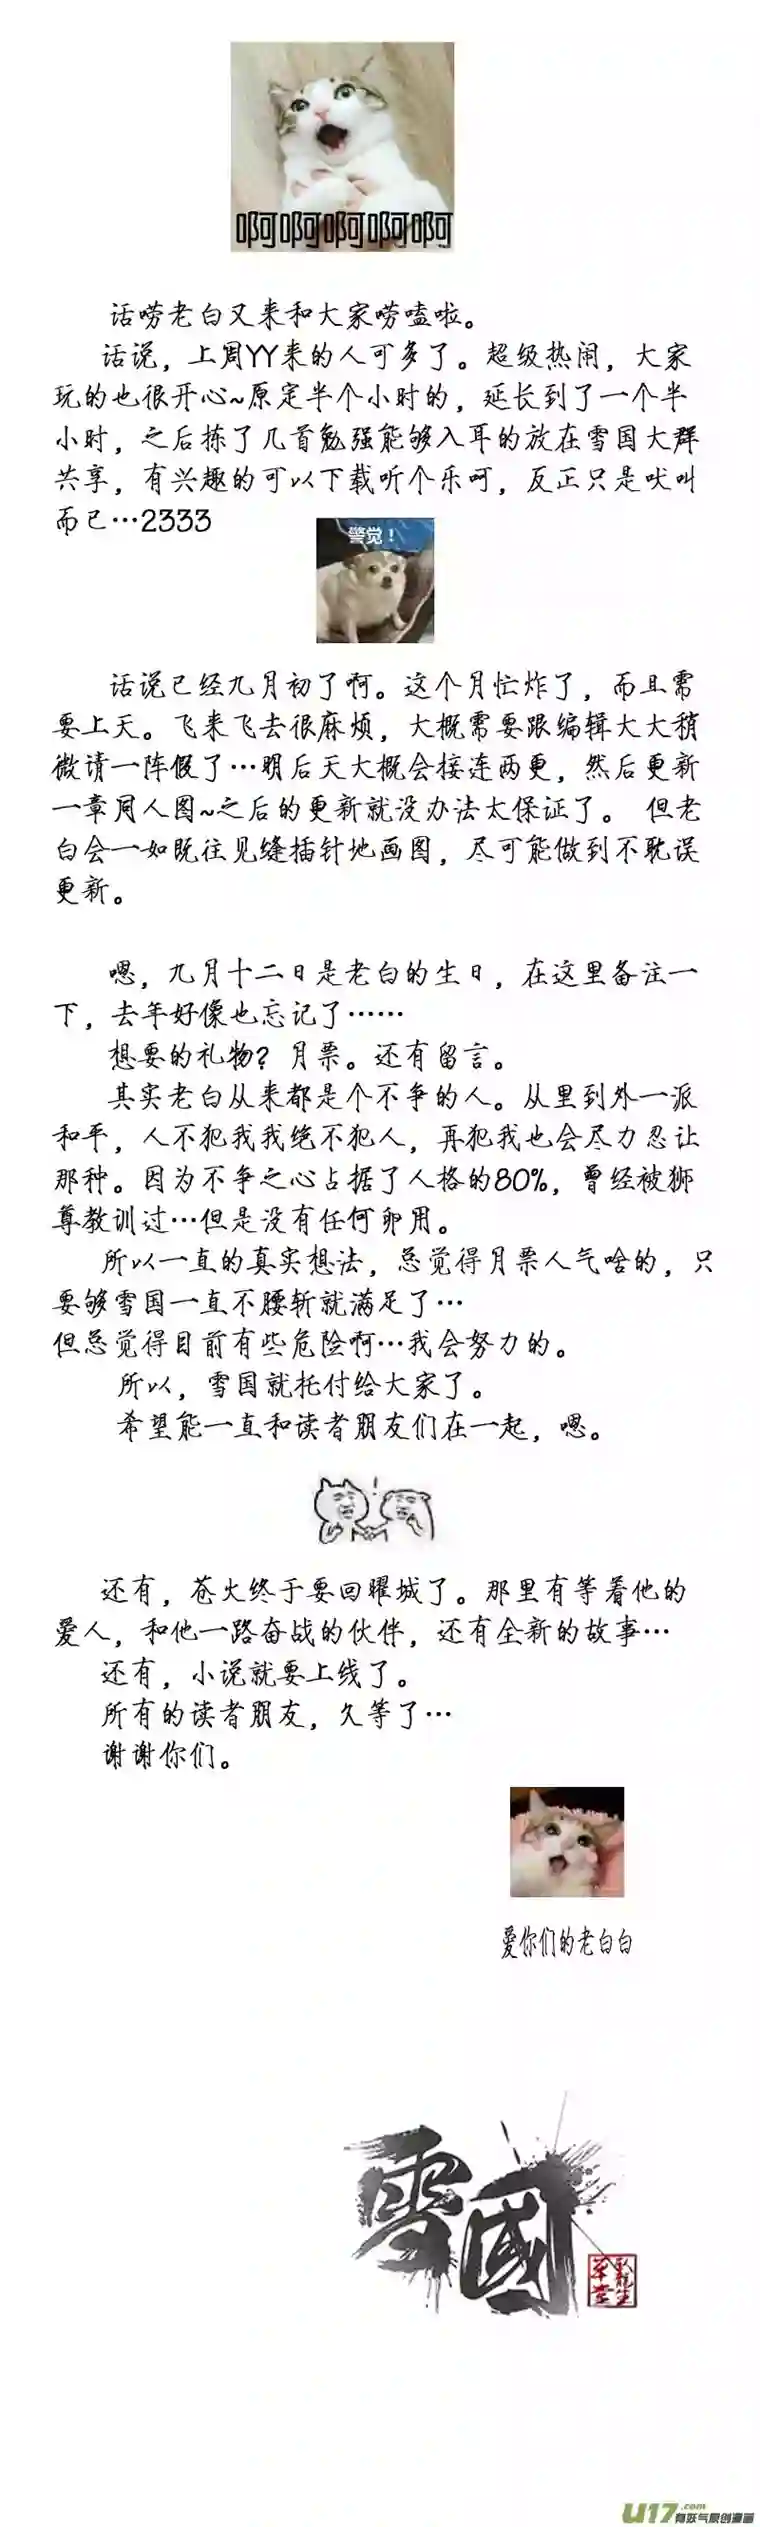 啊啊啊啊啊
话唠老白又来和大家唠嗑啦。
话说，上周YY来的人可多了。超级热闹，大家
玩的也很开心~原定半个小时的，延长到了一个半
小时，之后拣了几首勉强能够入耳的放在雪国大群
共享，有兴趣的可以下载听个乐呵，反正只是吠叫
而已…2333
警觉！
话说已经九月初了啊。这个月忙炸了，而且需
要上天。飞来飞去很麻烦，大概需要跟编辑大大稍
微请一阵假了…明后天大概会接连两更，然后更新
一章同人图~之后的更新就没办法太保证了。 但老
白会一如既往见缝插针地画图，尽可能做到不耽误
更新。
嗯，九月十二日是老白的生日，在这里备注一
下，去年好像也忘记了……
想要的礼物？月票。还有留言。
其实老白从来都是个不争的人。从里到外一派
和平，人不犯我我绝不犯人，再犯我也会尽力忍让
那种。因为不争之心占据了人格的80%，曾经被狮
尊教训过…但是没有任何卵用。
所以一直的真实想法，总觉得月票人气啥的，只
要够雪国一直不腰斩就满足了…
但总觉得目前有些危险啊…我会努力的。
所以，雪国就托付给大家了。
希望能一直和读者朋友们在一起，嗯。
！
还有，苍火终于要回曜城了。那里有等着他的
爱人，和他一路奋战的伙伴，还有全新的故事…
还有，小说就要上线了。
所有的读者朋友，久等了…
谢谢你们。
爱你们的老白白
雪國
U17.com
有妖气原创漫画